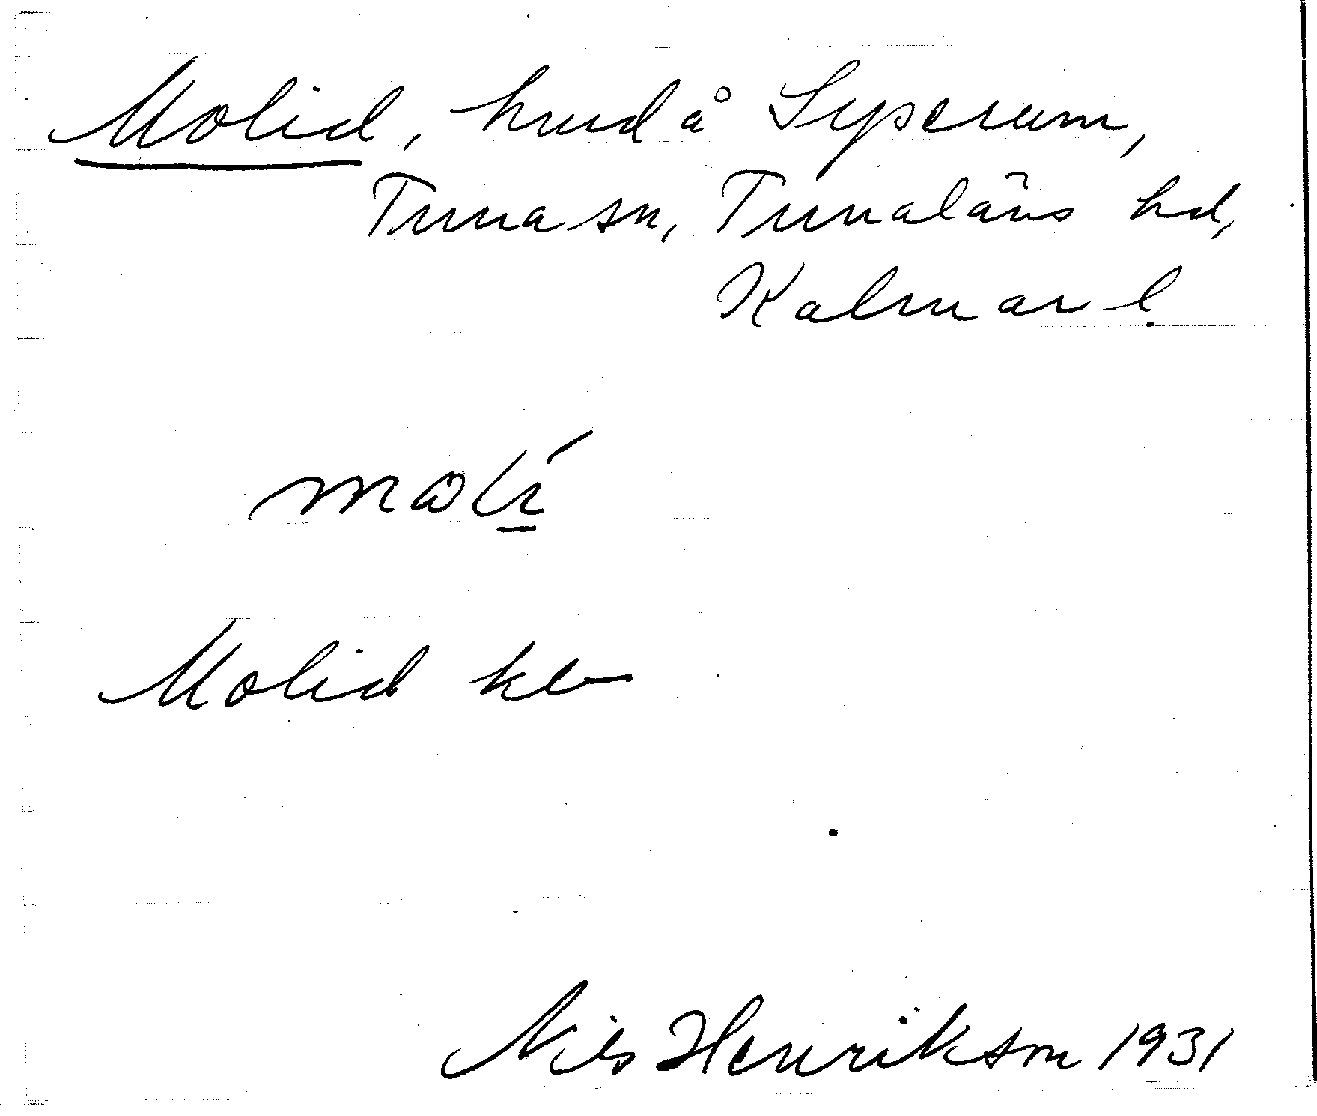 Molid, hmd å Syserum,
Tuna sn, Tunaläns hd,
Kalmar l.
Molid kb
Nils Henrikson 1931